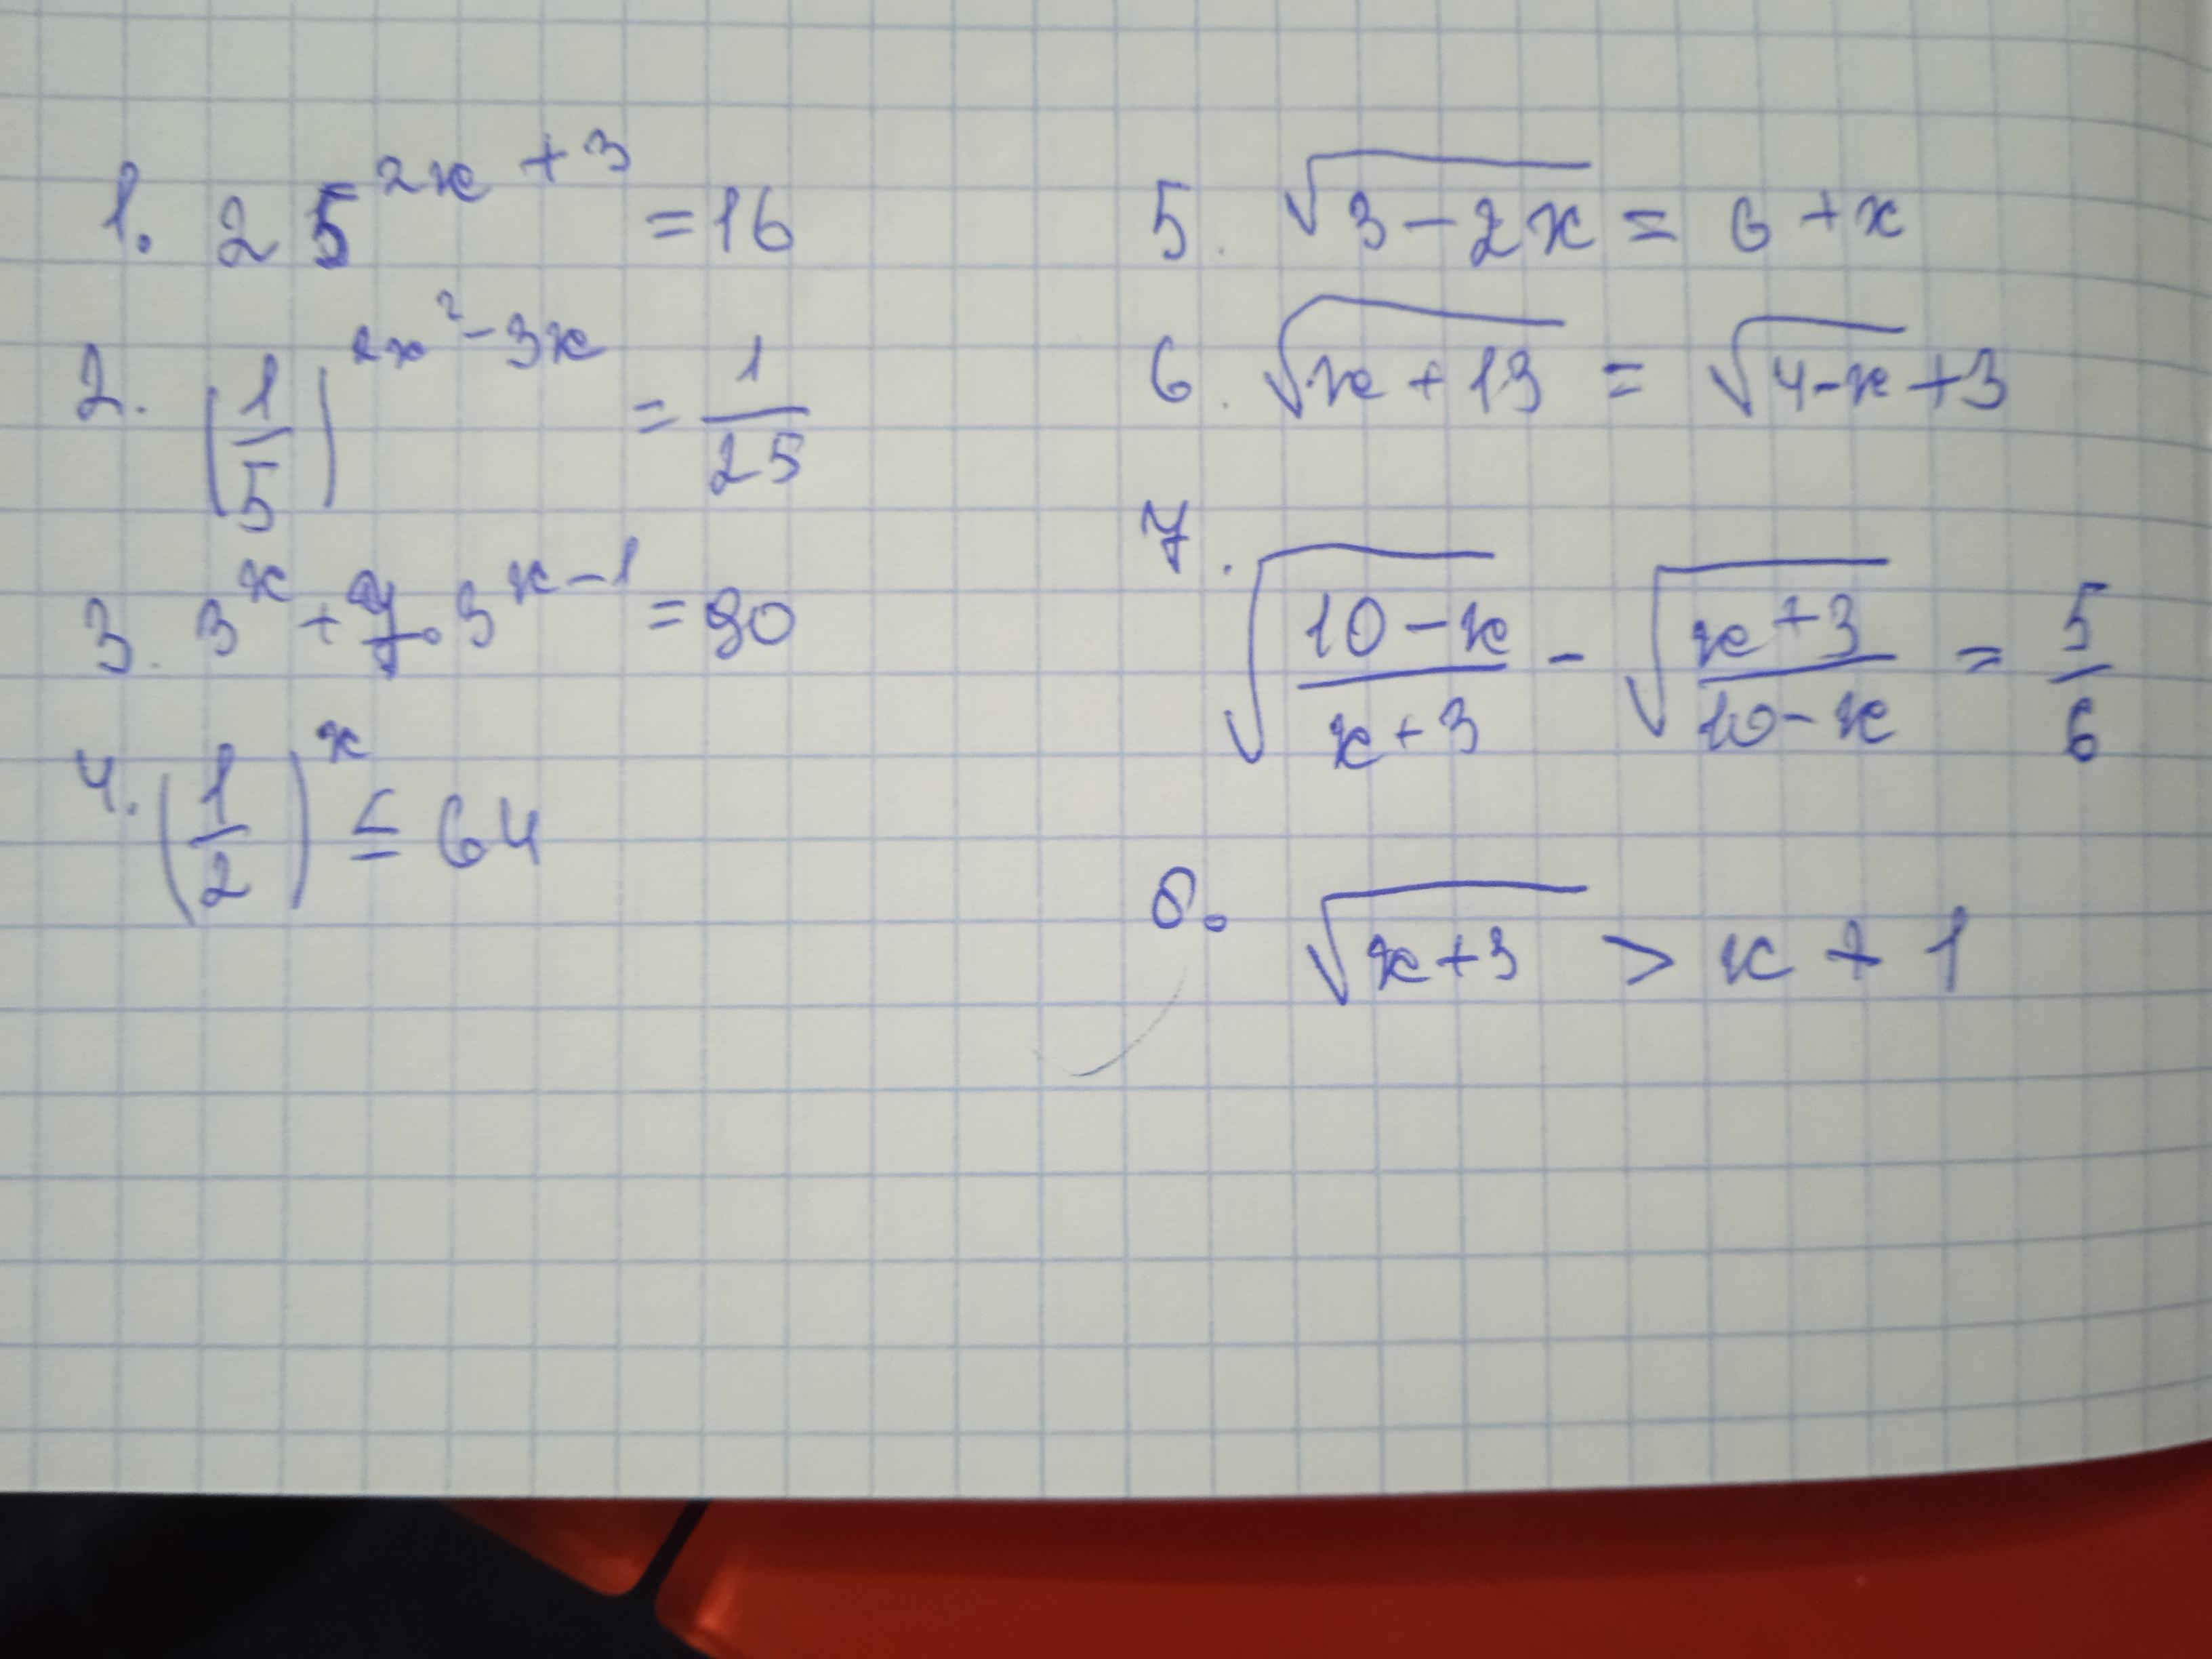 1. 25^(2x+3) = 16
2. (1/5)^(2x²-3x) = 1/25
3. 3^x + · 3^(x-1) = 90
4. (1/2)^x ≤ 64
5. √(3-2x) = 6+x
6. √(x+13) = √(4-x)+3
7. √((10-x)/(x+3)) - √((x+3)/(10-x)) = 5/6
8. √(x+3) > x+1